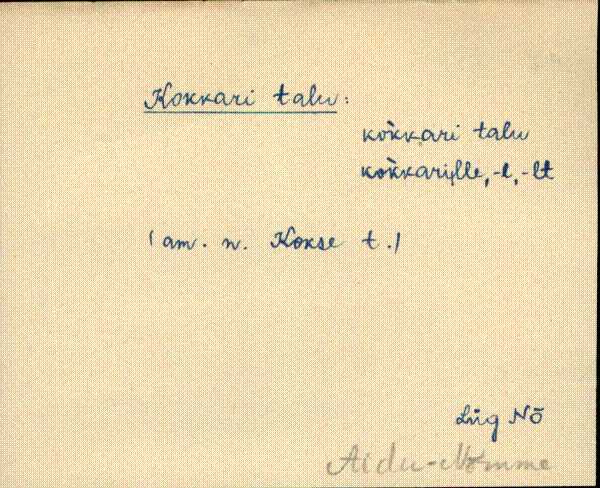 Kokkari talu:
kok̀kari talu
kok̀karịlle, -l, -lt
(am. n. Kokse t.)
Lüg Nõ
Aidu-Nõmme